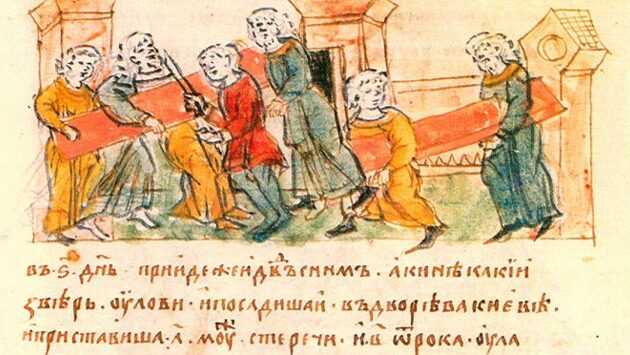 въ·ѕ҃·дн҃ь· прииде же и дв҃ъ с нимъ· аки нѣкакии
звѣрь· оулови· и посадиша и· въ дворѣ вакиевѣ·
и приставиша·л҃·моуⷤ· стеречи· и·в҃·ѿрока· оула